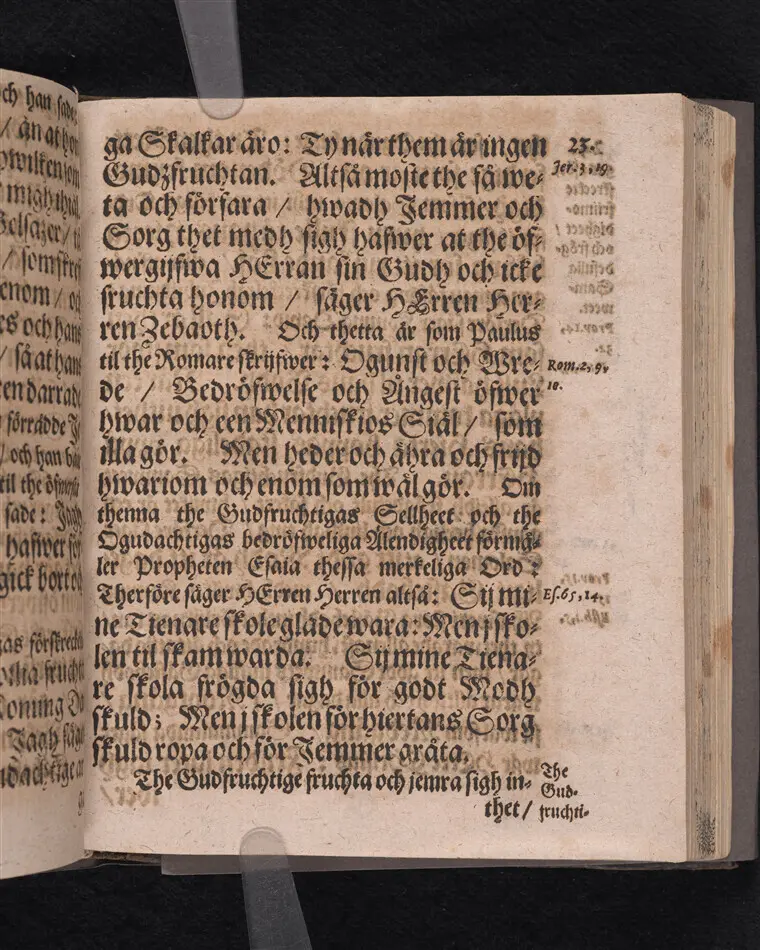 ch han sade:
ga Skalkar äro: Ty när them är ingen
Gudzfruchtan. Altså moste the få we-
ta och förfara / hwadh Jemmer och
Sorg thet medh sigh hafwer at the öf-
wergijfwa HErran sin Gudh och icke
fruchta honom / säger HErren Her-
ren Zebaoth. Och thetta är som Paulus
til the Romare skrijfwer: Ogunst och Wre-
de / Bedröfwelse och Ångest öfwer
hwar och een Menniskios Siäl / som
illa gör. Men heder och ähra och frijd
hwariom och enom som wäl gör. Om
thenna the Gudfruchtigas Sellheet och the
Ogudachtigas bedröfweliga Älendigheet förmä-
ler Propheten Esaia thessa merkeliga Ord:
Therföre säger HErren Herren altså: Sij mi-
ne Tienare skole glade wara: Men j sko-
len til skam warda. Sij mine Tiena-
re skola frögda sigh för godt Modh
skuld; Men j skolen för hiertans Sorg
skuld ropa och för Jemmer gråta.
The Gudfruchtige fruchta och jemra sigh in-
thet /
23.
Jer. 3, 19.
Rom. 2, 9,
10.
Es. 65, 14.
The
Gud-
fruchti-